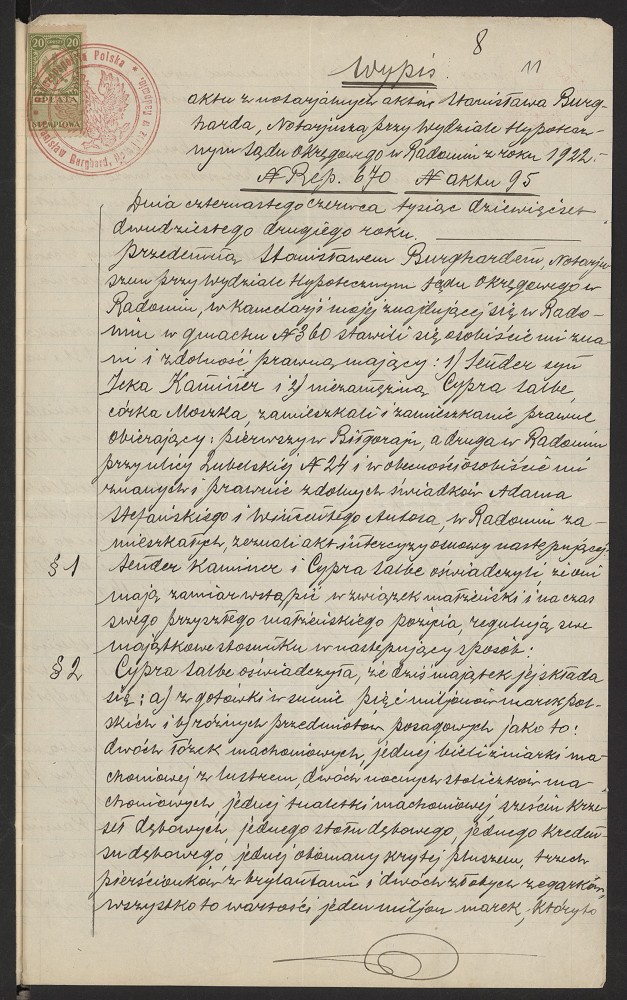 8
11
20 20
OPŁATA
STEMPLOWA
Polska
Stanisław Burghard,
Wypis
aktu z notarjalnych aktów Stanisława Burg-
harda, Notarjusza przy Wydziale Hypotecz-
nym Sądu Okręgowego w Radomiu z roku 1922.-
N Rep. 670 N aktu 95
Dnia czternastego czerwca tysiąc dziewięćset
dwudziestego drugiego roku.
przedemną Stanisławem Burghardem, Notarju-
szem przy Wydziale Hypotecznym Sądu Okręgowego w
Radomiu, w kancelarji mojej znajdującej się w Rado-
miu w gmachu N 360 stawili się osobiście mi zna-
ni i zdolność prawną mający: 1) Sender syn
Icka Kaminer i 2) niezamężna Cypra Salbe,
córka Moszka, zamieszkali i zamieszkanie prawne
obierający: pierwszy w Biłgoraju, a druga w Radomiu
przy ulicy Lubelskiej N 24 i w obecności osobiście mi
znanych i prawnie zdolnych świadków Adama
Stefańskiego i Wincentego Antosa, w Radomiu za-
mieszkałych, zeznali akt intercyzy osnowy następującej:
§ 1 Sender Kaminer i Cypra Salbe oświadczyli, że oni
mają zamiar wstąpić w związek małżeński i na czas
swego przyszłego małżeńskiego pożycia, regulują swe
majątkowe stosunki w następujący sposób:
§ 2 Cypra Salbe oświadczyła, że dziś majątek jej składa
się: a) z gotówki w sumie pięć miljonów marek pol-
skich i b) różnych przedmiotów posagowych jako to:
dwóch łóżek machoniowych, jednej bieliźniarki ma-
choniowej z lustrem, dwóch nocnych stoliczków ma-
choniowych, jednej tualetki machoniowej sześciu krze-
seł dębowych, jednego stołu dębowego, jednego kreden-
su dębowego, jednej otomany krytej pluszem, trzech
pierścionków z brylantami i dwóch złotych zegarków,
wszystko to wartości jeden miljon marek, któryto